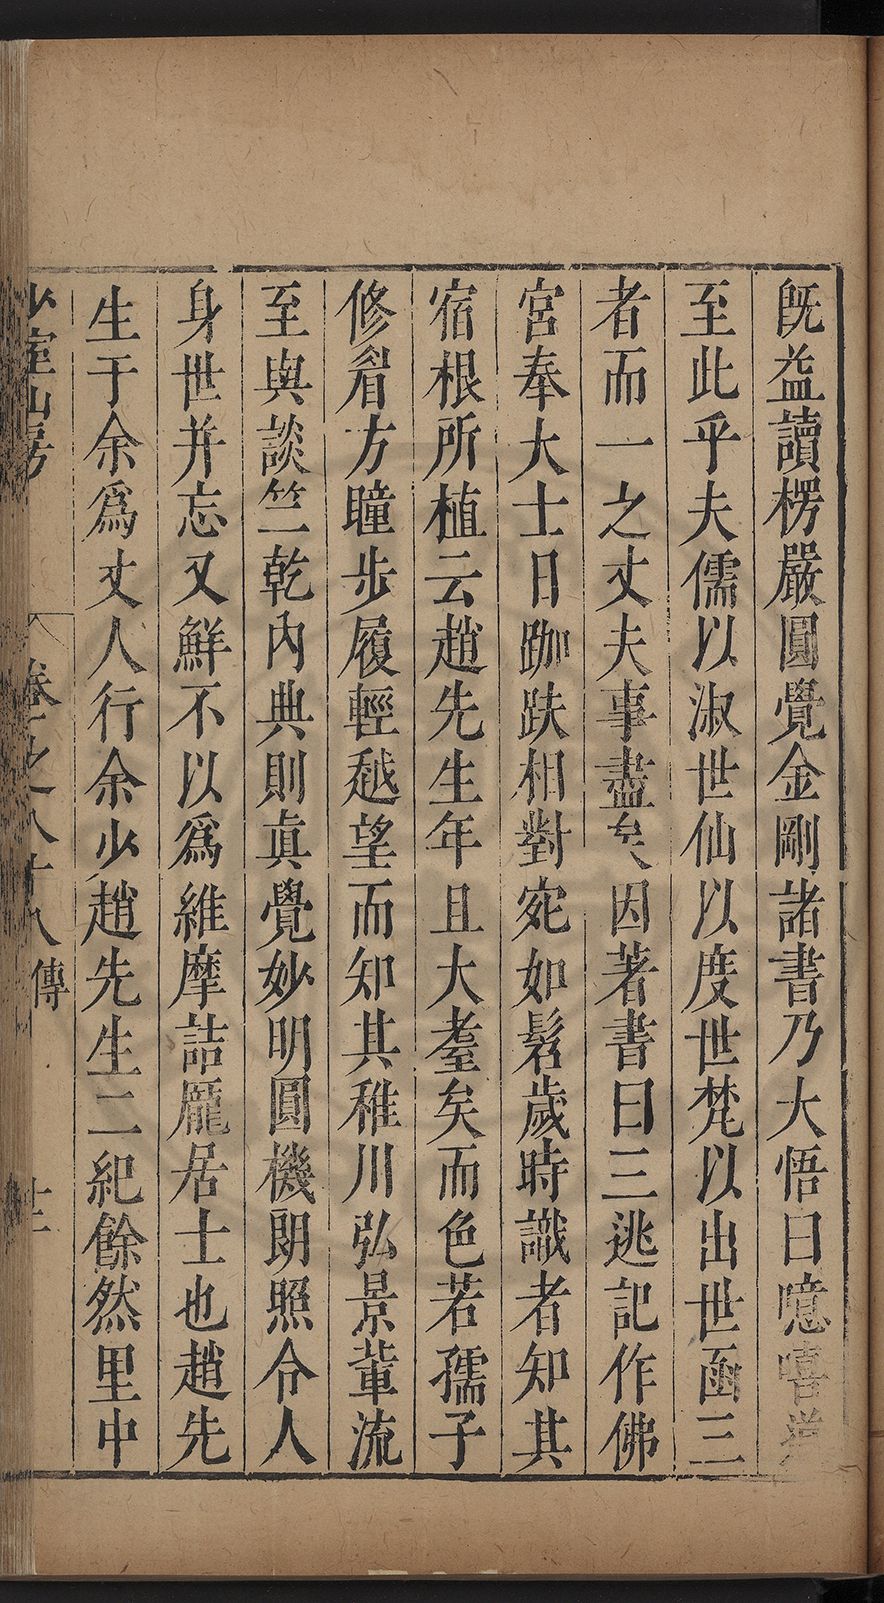 既益讀楞嚴圓覺金剛諸書乃大悟曰噫嘻道
至此乎夫儒以淑世仙以度世梵以出世函三
者而一之丈夫事盡矣因著書曰三逃記作佛
宮奉大士日跏趺相對宛如髫歲時識者知其
宿根所植云趙先生年且大耋矣而色若孺子
修眉方瞳步履輕越望而知其稚川弘景輩流
至與談竺乾內典則眞覺妙明圓機朗照令人
身世并忘又鮮不以爲維摩詰龐居士也趙先
生于余爲丈人行余少趙先生二紀餘然里中
少室山房 卷之八十八 傳 十二